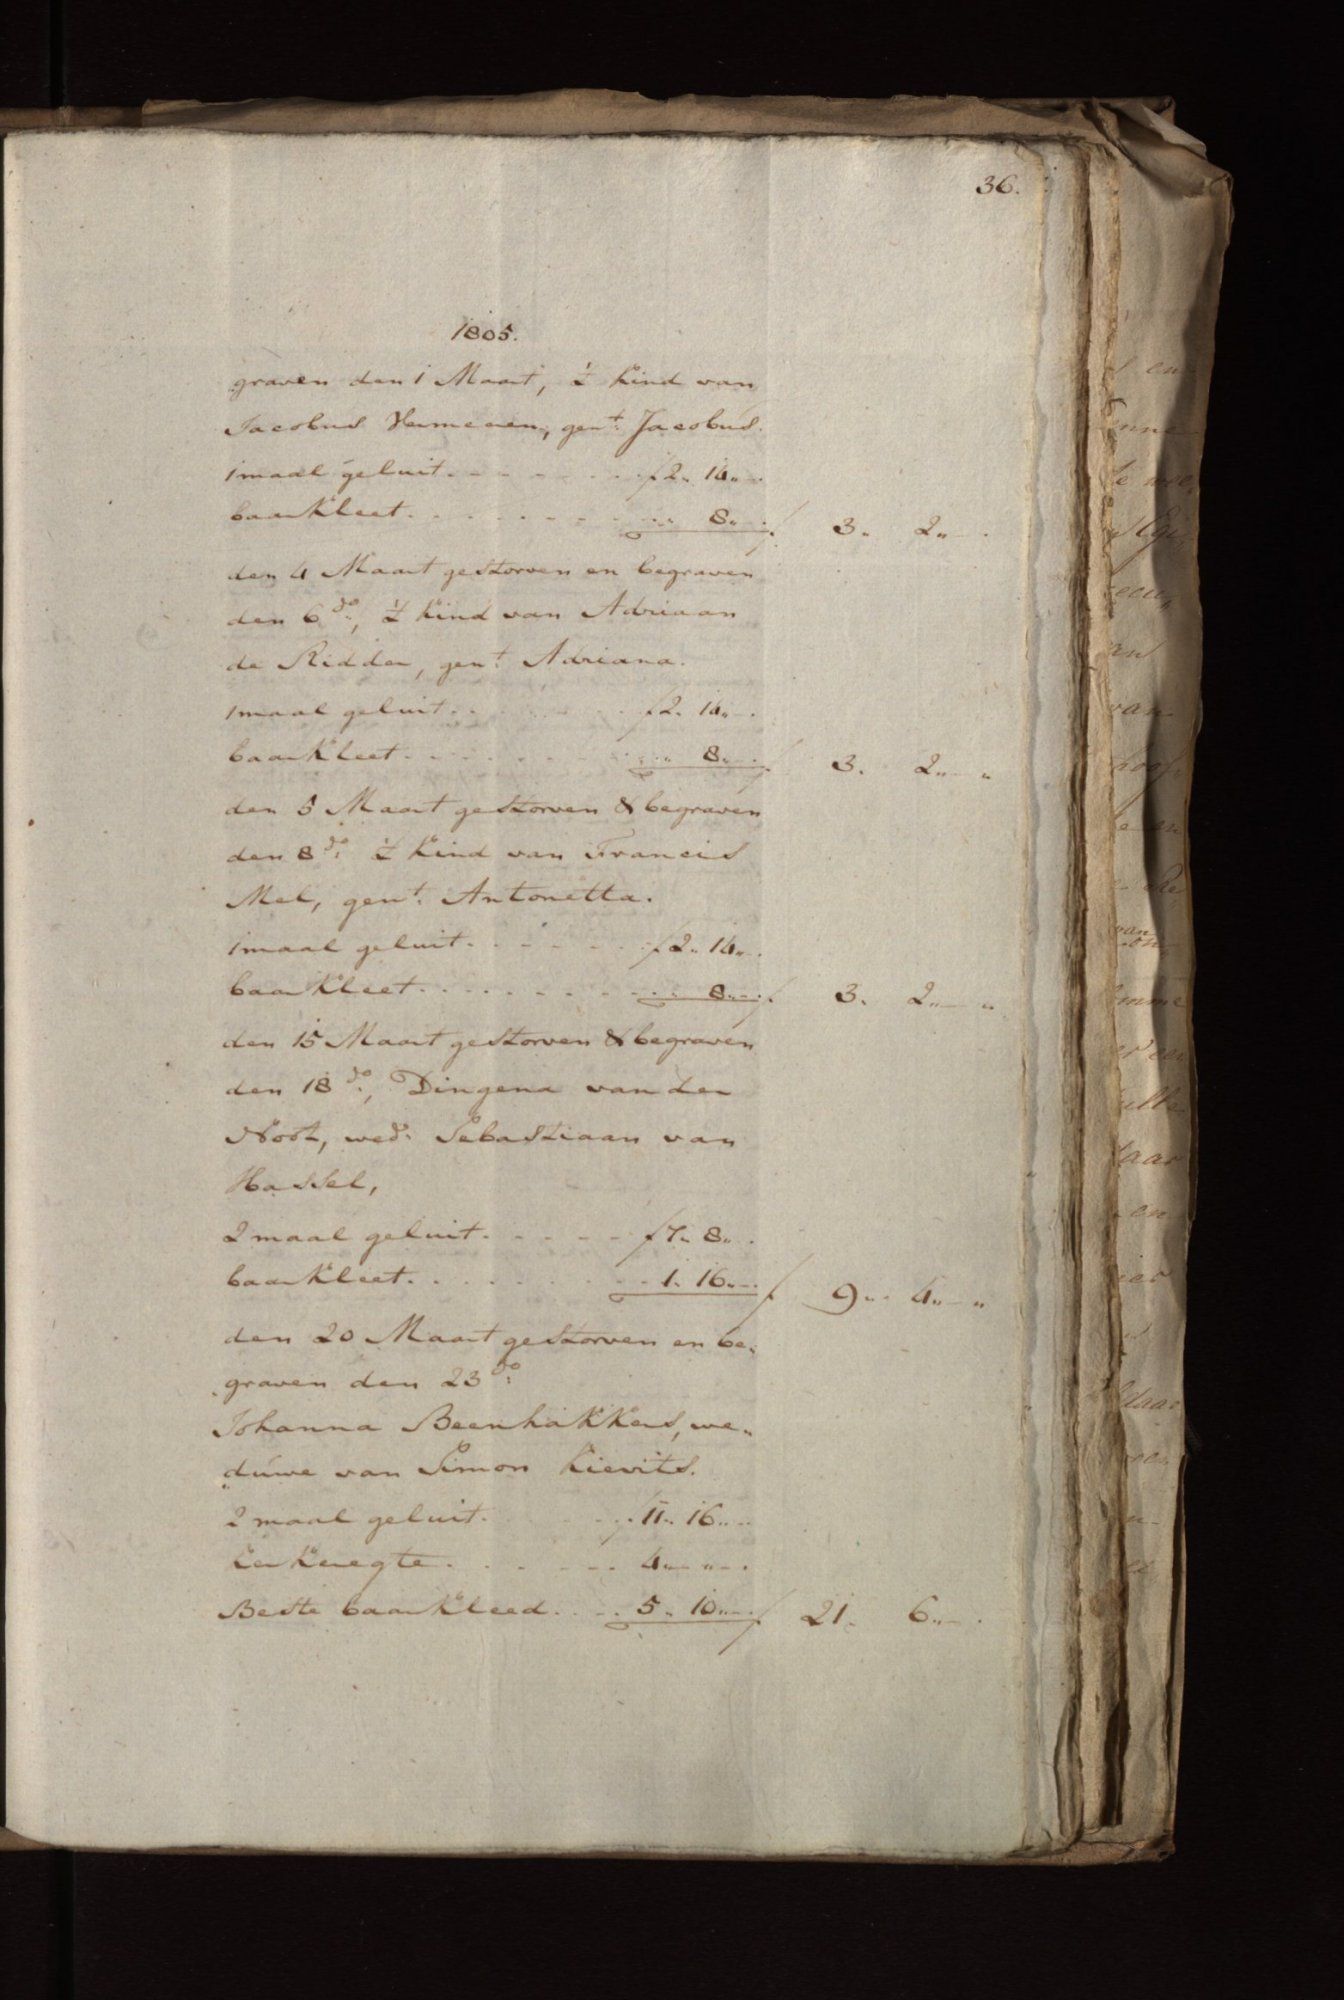 36.
1805.
graven den 1 Maart, 't kind van
Jacobus Hermeren, gent. Jacobus.
1 maal geluit. - - - - - - - f 2.. 14..-.
baarkleet. . - - - - - - - - .. 8..-. f 3.. 2..-.
den 4 Maart gestorven en begraven
den 6 do:, 't kind van Adriaan
de Ridder, gent. Adriana.
1 maal geluit. . . . . . . f 2. 14..-.
baarkleet. - - - - - - - - .. 8..-. f 3. 2..-..
den 5 Maart gestorven & begraven
den 8 do: 't kind van Francis
Mel, gent. Antonetta.
1 maal geluit. - - - - - - f 2.. 14..-.
baarkleet. . - - - - - - - .. 8..-. f 3. 2..-..
den 15 Maart gestorven & begraven
den 18 do:, Dingena van der
Noot, wed: Sebastiaan van
Hassel,
2 maal geluit. - - - - - f 7.. 8...
baarkleet. . . - - - - - - 1. 16..-. f 9.. 4..-..
den 20 Maart gestorven en be„
graven den 23 do:
Johanna Beenhakkers, we„
duwe van Simon Kievits.
2 maal geluit. . . . . f 11.. 16..-.
kerkeregte. . - - - - - 4..-..-.
Beste baarkleed. . - . 5.. 10..-. f 21. 6..-.